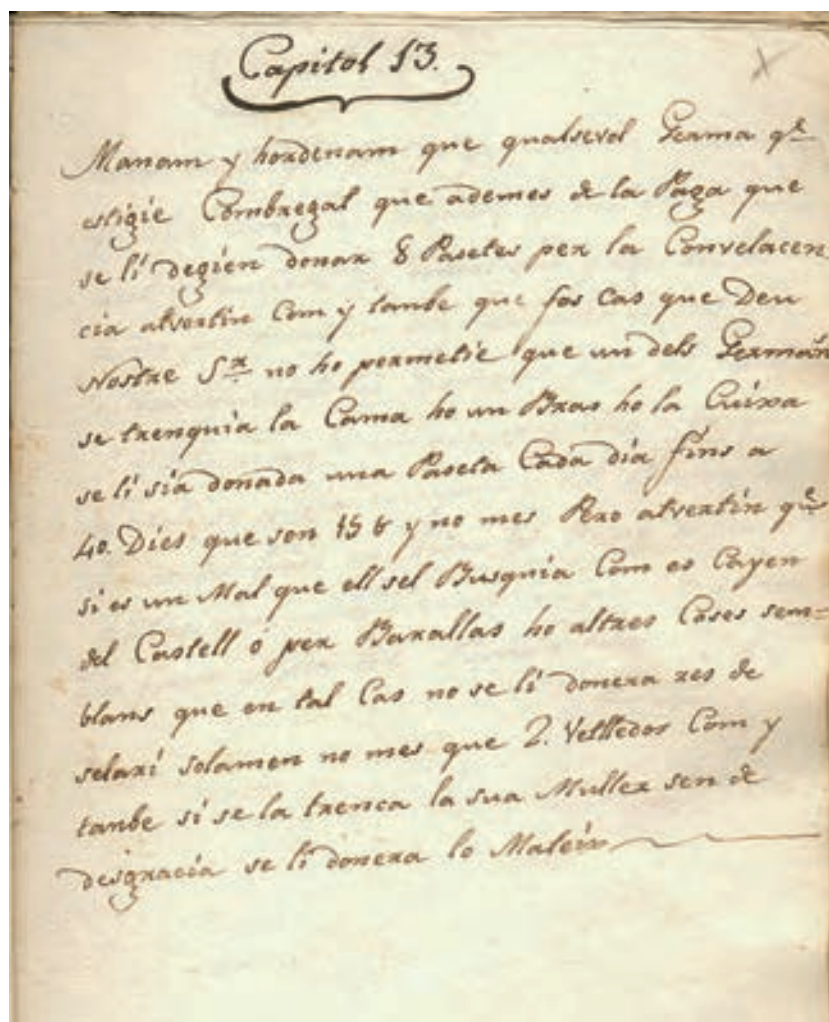 Capitol 13.
Manam y hordenam que qualsevol Germa q.e
estigie Combregat que ademes de la Paga que
se li degien donar 8 Pasetes per la Convelacen
cia atvertin Com y tanbe que fos Cas que Deu
Nostre S.r no ho permetie que un dels Germáns
se trenquia la Cama ho un Bras ho la Cuixa
se li sia donada una Paseta Cada dia fins a
40. Dies que son 15 y no mes Pero atvertin q.e
si es un Mal que ell sel Busquia Com es Cayen
del Castell ó per Barallas ho altres Coses sem=
blans que en tal Cas no se li donera res de
selaxí solamen no mes que 2. Vetlledos Com y
tanbe si se la trenca la sua Muller sen de
desgracia se li donera lo Mateix